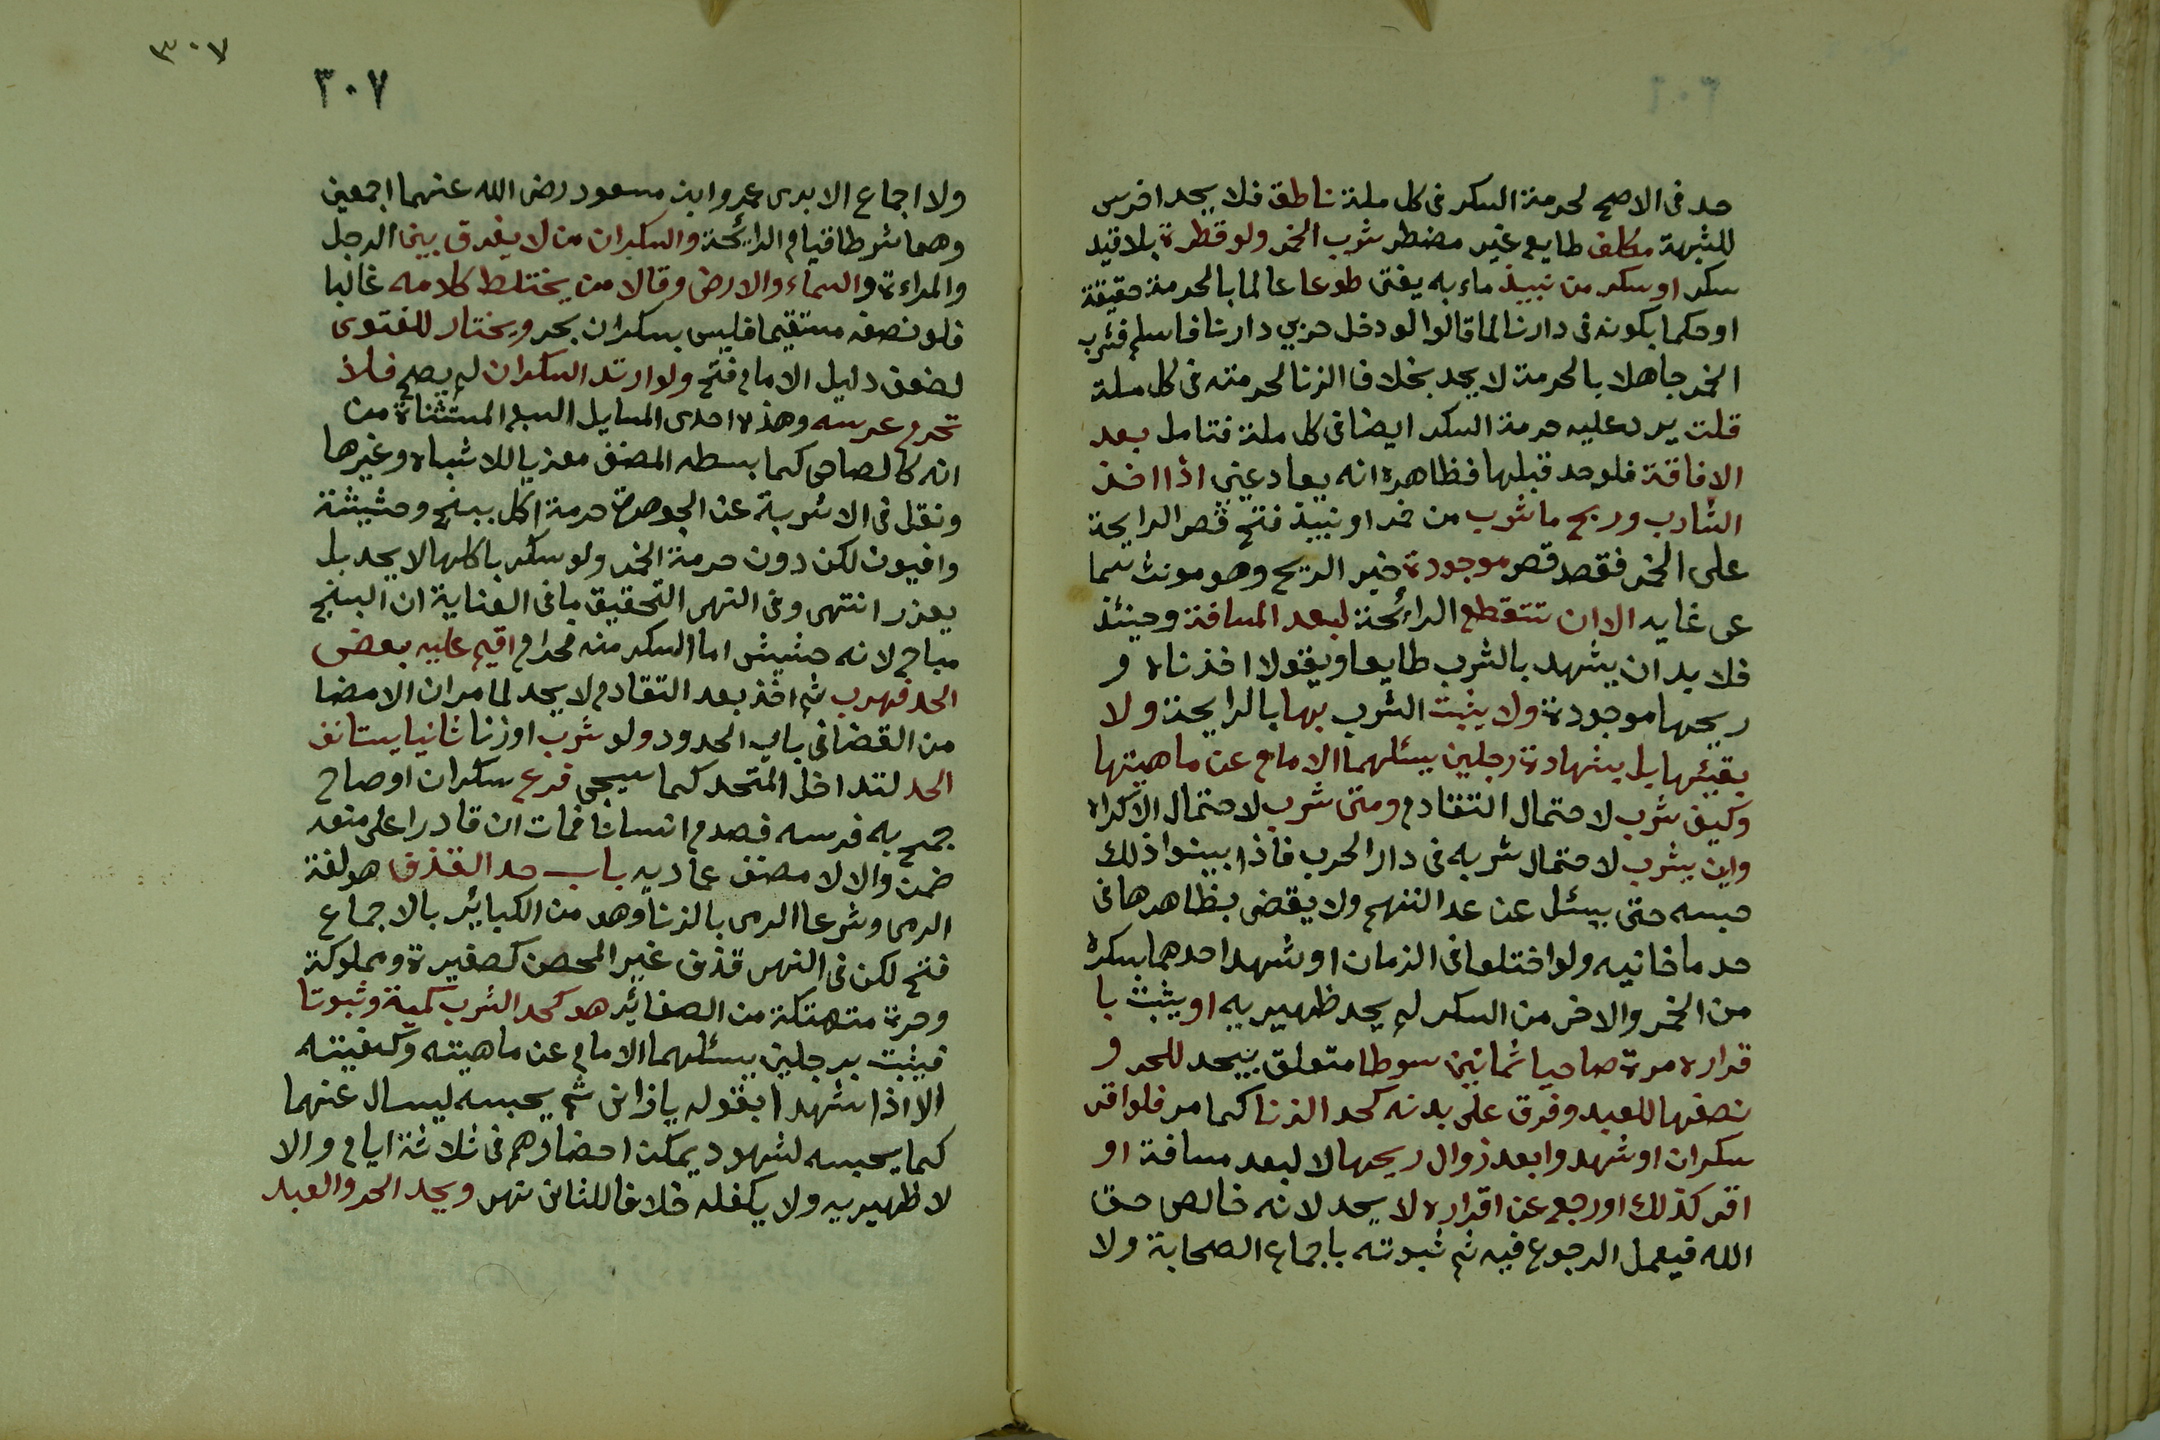 حد فى الاصح لحرمة السكر فى كل ملة ناطق فلا يحد اخرس
للشبهة مكلف طايع غير مضطر شرب الخمر ولو قطرة بلا قيد
سكر او سكر من نبيذ ماء به يفتى طوعا عالما بالحرمة حقيقة
او حكما بكونه فى دارنا لما قالوا لو دخل حربي دارنا فاسلم فشرب
الخمر جاهلا بالحرمة لا يحد بخلاف الزنا لحرمته فى كل ملة
قلت يرد عليه حرمة السكر ايضا فى كل ملة فتامل بعد
الافاقة فلو حد قبلها فظاهره انه يعاد عينى اذا اخذ
الشارب وريح ما شرب من خمر او نبيذ فتح قصر الرايحة
على الخمر فقصد قصر موجودة خبر الريح وهو مونث سما
عى غايه الا ان تنقطع الرائحة لبعد المسافة وحينئذ
فلا بد ان يشهد بالشرب طايعا ويقولا اخذناه و
ريحها موجودة ولا يثبت الشرب بها بالرايحة ولا
بقيئها بل بشهادة رجلين يسئلهما الامام عن ماهيتها
وكيف شرب لاحتمال التقادم ومتى شرب لاحتمال الاكراه
واين يشرب لاحتمال شربه فى دار الحرب فاذا بينوا ذلك
حبسه حتى يسئل عن عدالتهم ولا يقضى بظاهرها فى
حد ما خانيه ولو اختلفا فى الزمان او شهد احدهما بسكره
من الخمر والاخر من السكر لم يحد ظهيريه او يثبت با
قراره مرة صاحيا ثمانين سوطا متعلق بيحد للحر و
نصفها للعبد وفرق على بدنه كحد الزنا كما مر فلو اقر
سكران او شهدوا بعد زوال ريحها لا لبعد مسافة او
اقر كذلك او رجع عن اقراره لا يحد لانه خالص حق
الله فيعمل الرجوع فيه ثم ثبوته باجماع الصحابة ولا
٣٠٧
٣٠٧
ولا اجماع الا برى عمر وابن مسعود رضى الله عنهما اجمعين
وهما شرطا قيام الرائحة والسكران من لا يفرق بين الرجل
والمراءة والسماء والارض وقالا من يختلط كلامه غالبا
فلو نصفه مستقيما فليس بسكران بحر ويختار للفتوى
لضعف دليل الامام فتح ولو ارتد السكران لم يصح فلا
تحرم عرسه وهذه احدى المسايل السبع المستثناة من
انه كالصاحى كما بسطه المصنف معزيا للاشباه وغيرها
ونقل فى الاشربة عن الجوهرة حرمة اكل بنج وحشيشة
وافيون لكن دون حرمة الخمر ولو سكر باكلها لا يحد بل
يعزر انتهى وفى النهر التحقيق ما فى العناية ان البنج
مباح لانه حشيش اما السكر منه فحرام اقيم عليه بعض
الحد فهرب ثم اخذ بعد التقادم لا يحد لما مر ان الامضا
من القضا فى باب الحدود ولو شرب او زنا ثانيا يستانف
الحد لتداخل المتحد كما سيجى فرع سكران او صاح
جمح به فرسه فصدم انسانا فمات ان قادرا على منعه
ضمن والا لا مصنف عماديه باب حد القذف هو لغة
الرمى وشرعا الرمى بالزنا وهو من الكبائر بالاجماع
فتح لكن فى النهر قذف غير المحصن كصغيرة ومملوكة
وحرة متهتكة من الصغائر هو كحد الشرب كمية وثبوتا
فيثبت برجلين يسئلهما الامام عن ماهيته وكيفيته
الا اذا شهدا بقوله يا زانى ثم يحبسه ليسال عنهما
كما يحبسه لشهود يمكن احضارهم فى ثلاثة ايام والا
لا ظهيريه ولا يكفله خلافا للثانى نهر ويحد الحر والعبد